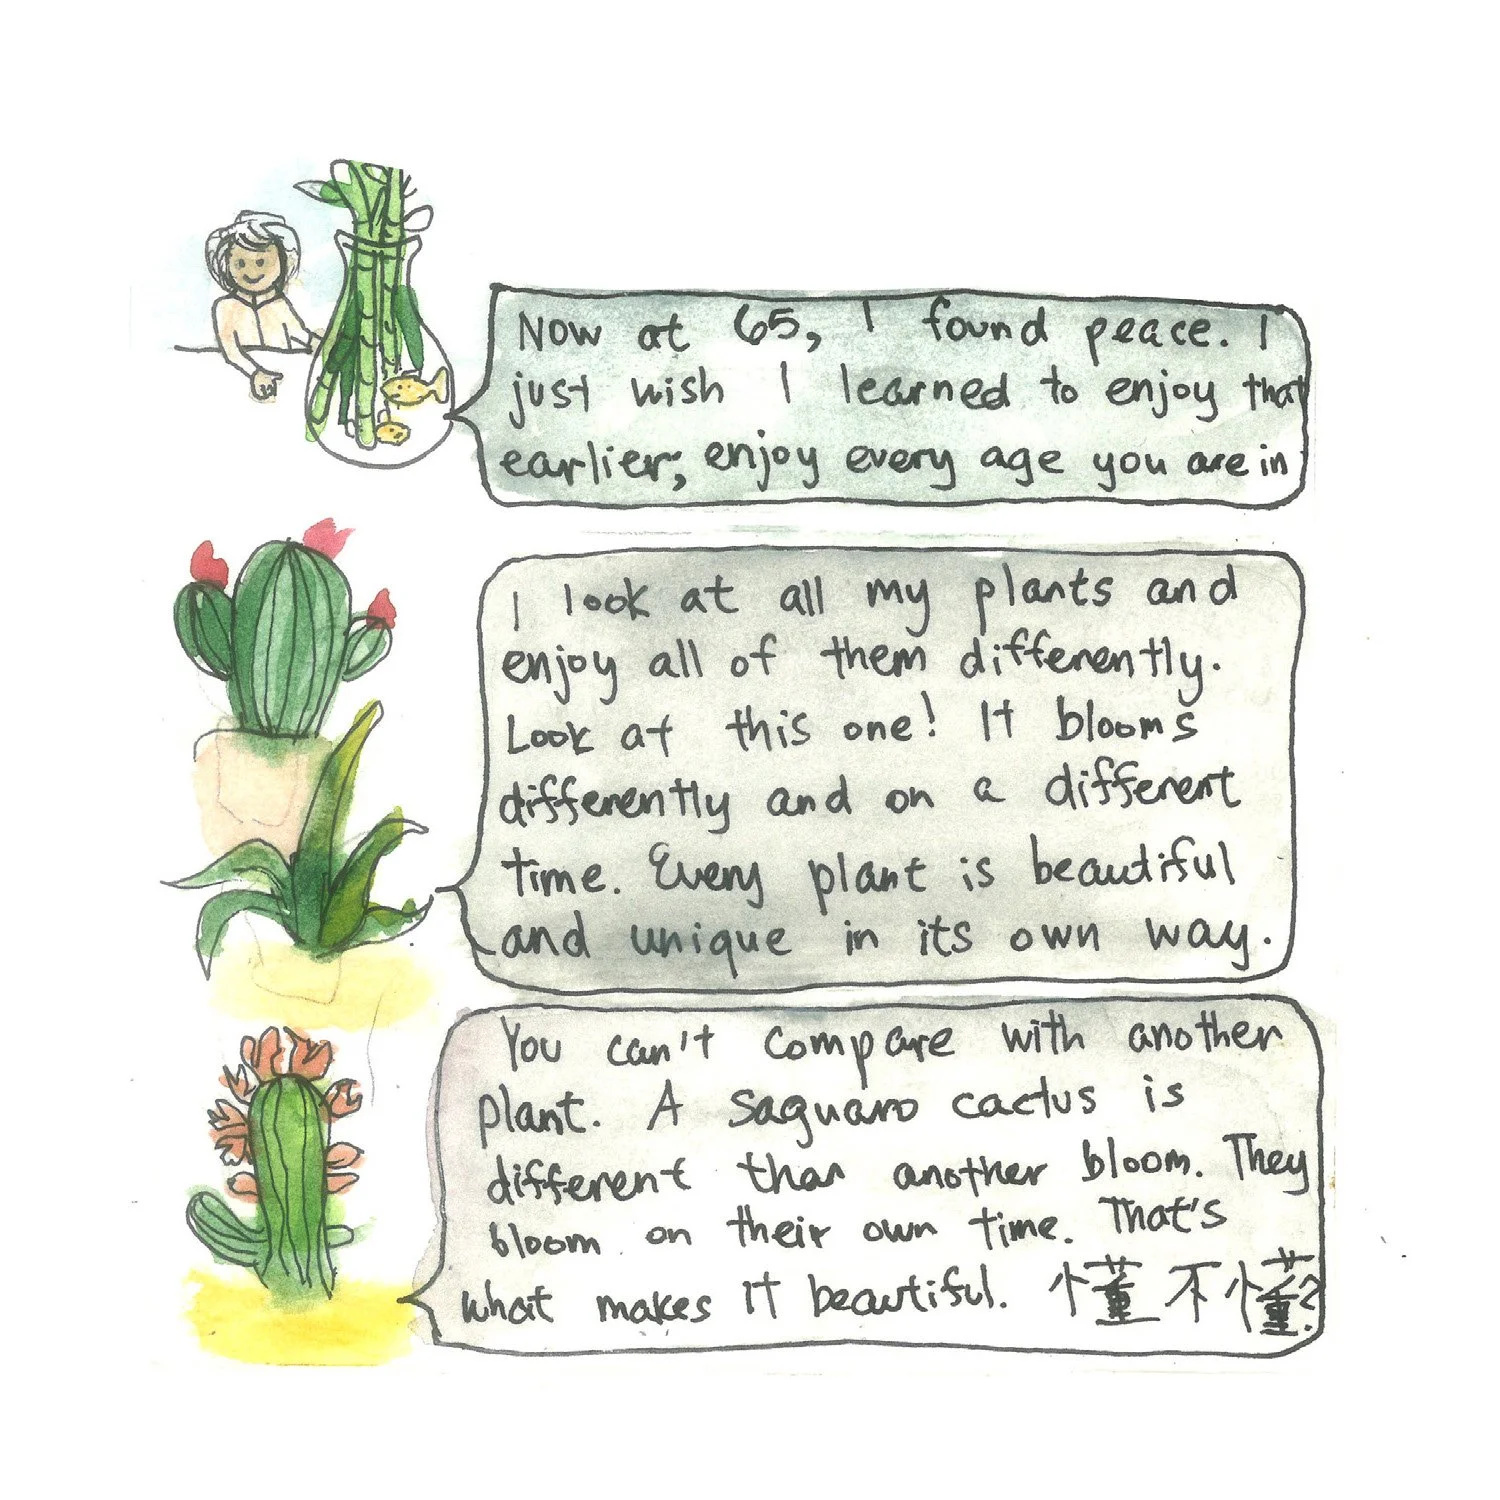 Now at 65, I found peace. I
just wish I learned to enjoy that
earlier; enjoy every age you are in
I look at all my plants and
enjoy all of them differently.
Look at this one! It blooms
differently and on a different
time. Every plant is beautiful
and unique in its own way.
You can't compare with another
plant. A saguaro cactus is
different than another bloom. They
bloom on their own time. That's
what makes it beautiful. 懂不懂?